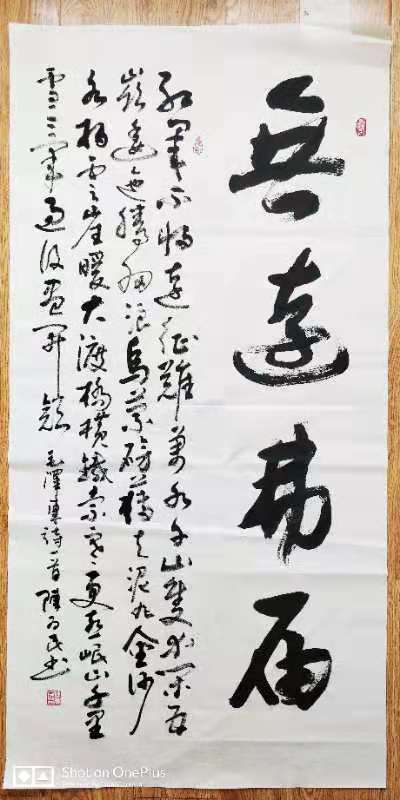 無遠弗届
紅軍不怕遠征難萬水千山隻等閑五
嶺逶迤騰細浪烏蒙磅礴走泥丸金沙
水拍雲崖暖大渡橋橫鐵索寒更喜岷山千里
雪三軍過後盡開顏 毛澤東詩一首 民书
Shot on OnePlus